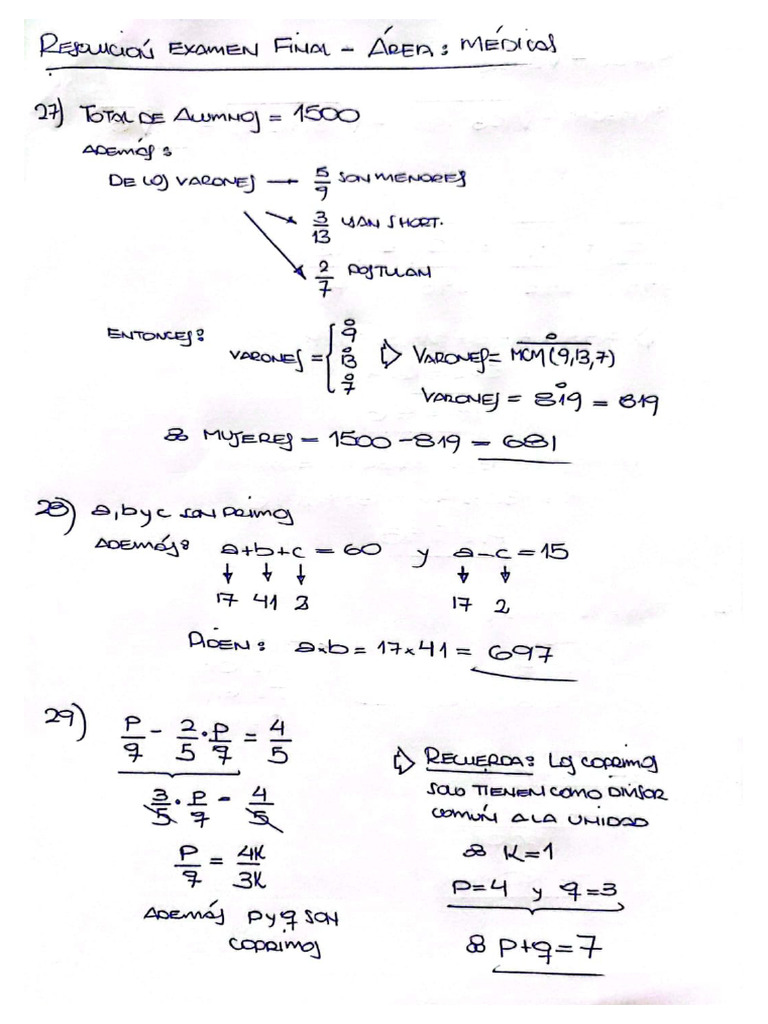 RESOLUCIÓN EXAMEN FINAL - ÁREA: MÉDICAS
27) TOTAL DE ALUMNOS = 1500
ADEMÁS:
DE LOS VARONES → 5/9 SON MENORES
→ 3/13 USAN SHORT.
→ 2/7 POSTULAN
ENTONCES: VARONES = { 9° 13° 7° ⇒ VARONES = MCM(9,13,7)°
VARONES = 819° = 819
∴ MUJERES = 1500 - 819 = 681
28) a, b y c SON PRIMOS
ADEMÁS: a+b+c = 60 y a-c = 15
↓ ↓ ↓ ↓ ↓
17 41 2 17 2
PIDEN: a×b = 17×41 = 697
29) P/q - 2/5 · P/q = 4/5
3/5 · P/q - 4/5
P/q = 4K/3K
ADEMÁS P y q SON
COPRIMOS
⇒ RECUERDA: LOS COPRIMOS
SOLO TIENEN COMO DIVISOR
COMÚN A LA UNIDAD
∴ K=1
P=4 y q=3
∴ P+q=7